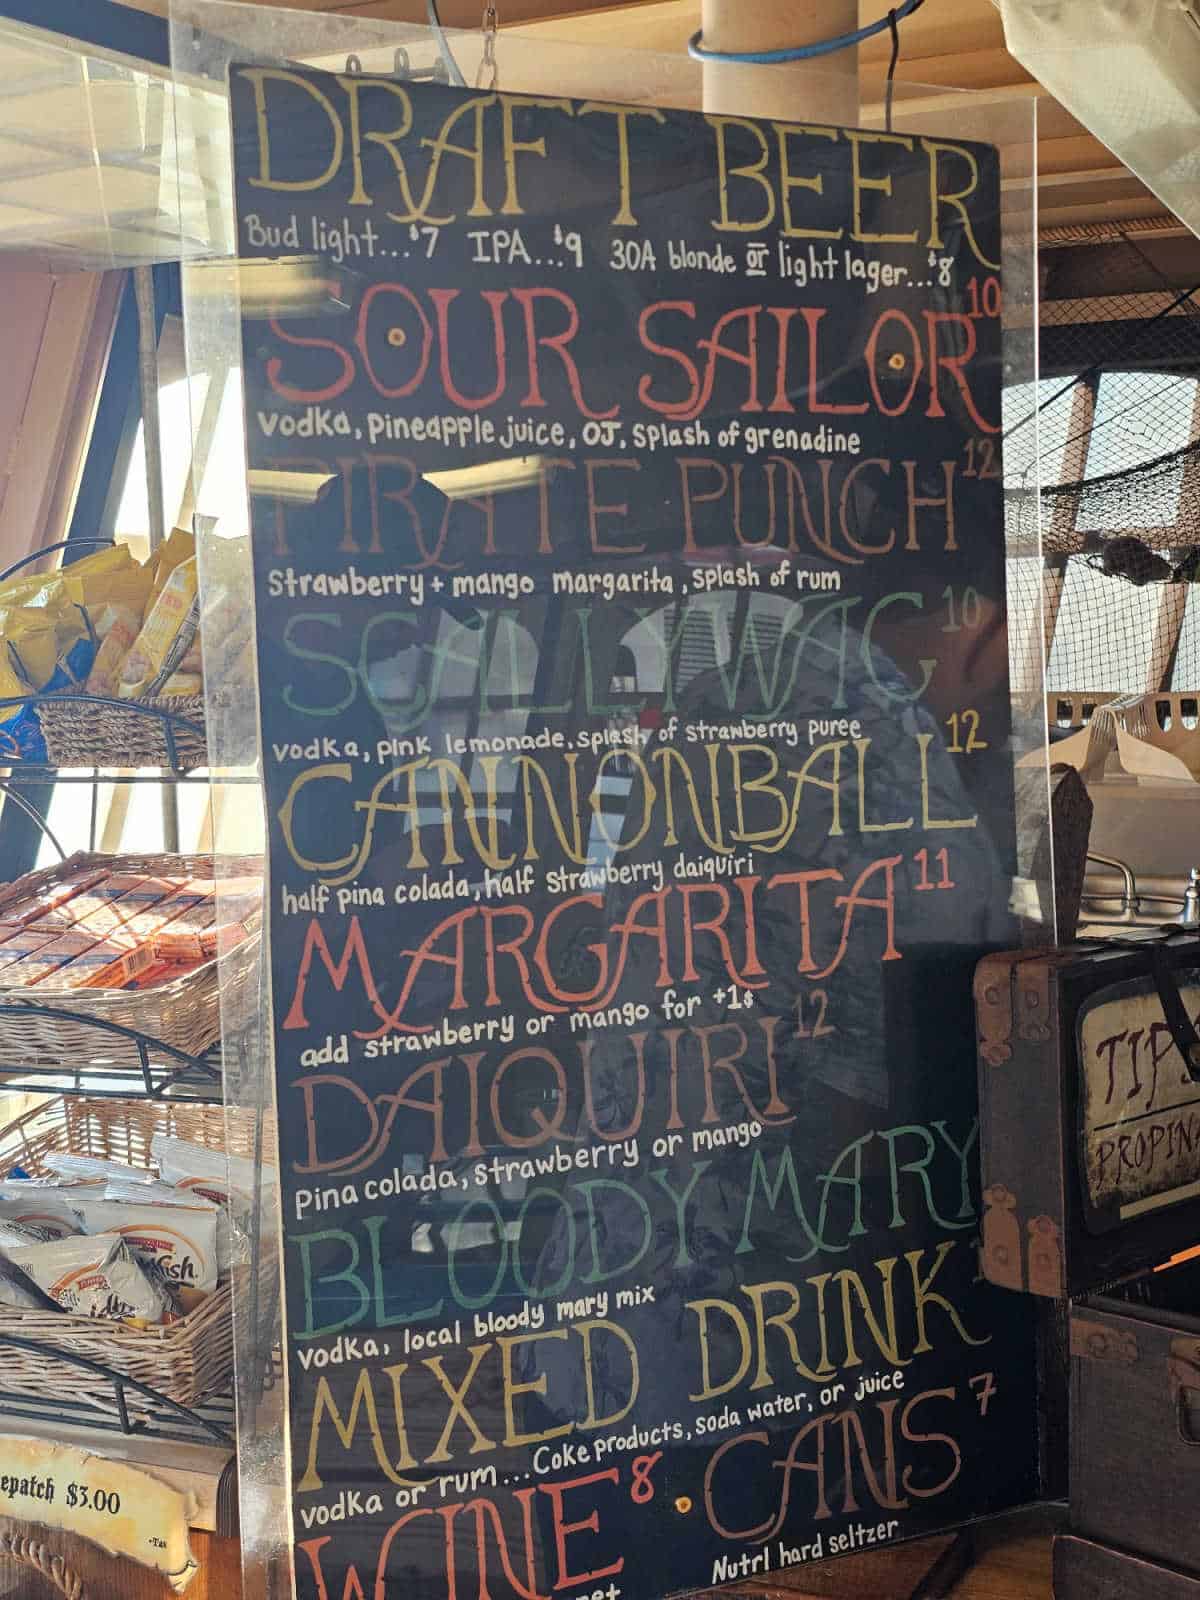 DRAFT BEER
Bud light...$7 IPA...$9 30A blonde or light lager...$8
SOUR SAILOR 10
vodka, pineapple juice, OJ, splash of grenadine
PIRATE PUNCH 12
strawberry + mango margarita, splash of rum
SCALLYWAG 10
vodka, pink lemonade, splash of strawberry puree
CANNONBALL 12
half pina colada, half strawberry daiquiri
MARGARITA 11
add strawberry or mango for +1$
DAIQUIRI 12
pina colada, strawberry or mango
BLOODY MARY
vodka, local bloody mary mix
MIXED DRINK
vodka or rum... Coke products, soda water, or juice
WINE 8 • CANS 7
Nutrl hard seltzer
TIPS
PROPINA
epatch $3.00
-Tax